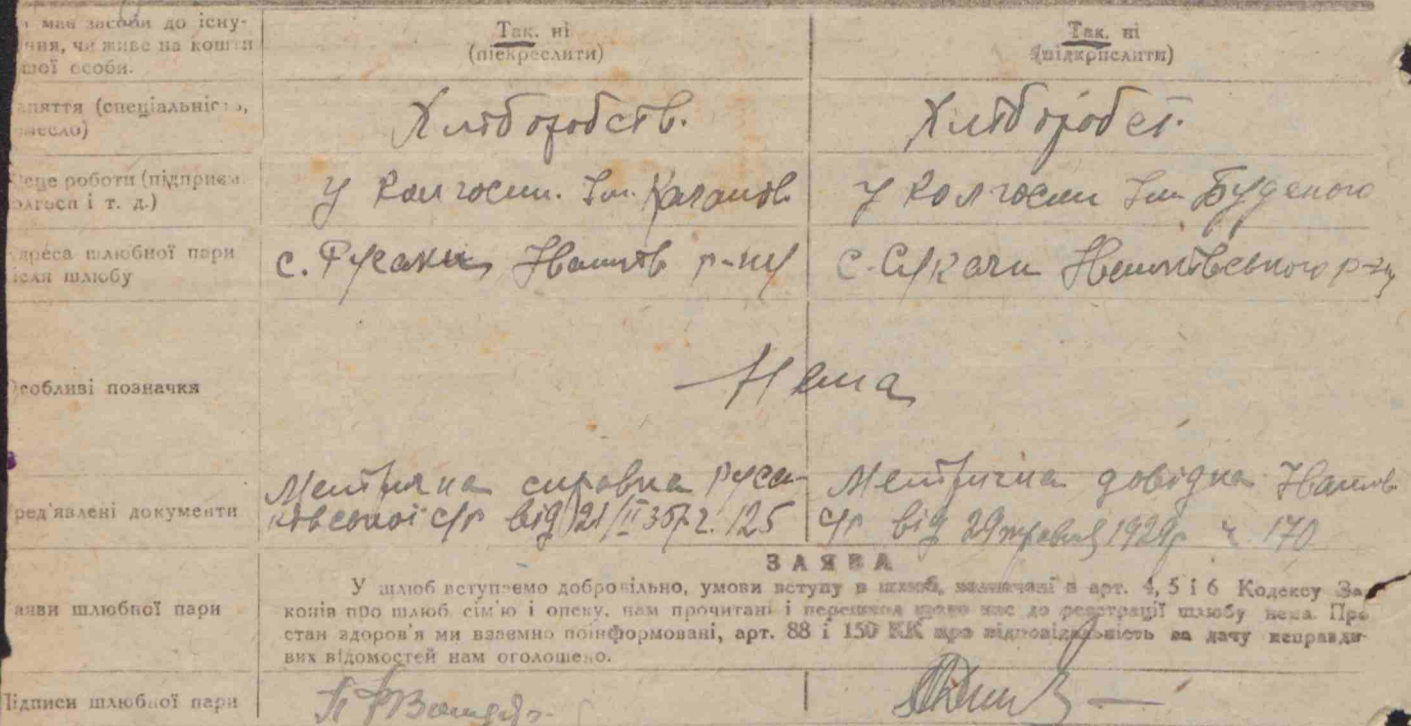 має засоби до існу-
ння, чи живе на кошти
шої особи.
Так, ні
(підкреслити)
Так, ні
(підкрислити)
аняття (спеціальність,
месло)
Хліборобств.
Хлібороб ст.
сце роботи (підприєм.
олгосп і т. д.)
У колгоспі. Ім. Каганов.
У колгоспі Ім. Буденого
дреса шлюбної пари
ісля шлюбу
с. Русаки, Іванків р-ну
с. Сукачи Іванківського р-ну
собливі позначкя
Нема
ред'явлені документи
Метрична справка Руса-
ківської с/р від 21/II 35 р. ч. 125
Метрична довідка Іванків
с/р від 29 травня 1929р ч 170
ЗАЯВА
аяви шлюбної пари
У шлюб вступаємо добровільно, умови вступу в шлюб, зазначені в арт. 4, 5 і 6 Кодексу За-
конів про шлюб, сім'ю і опеку, нам прочитані і перешкод до реєстрації шлюбу нема. Про
стан здоров'я ми взаємно поінформовані, арт. 88 і 150 КК про відповідальність за дачу неправди-
вих відомостей нам оголошено.
ідписи шлюбної пари